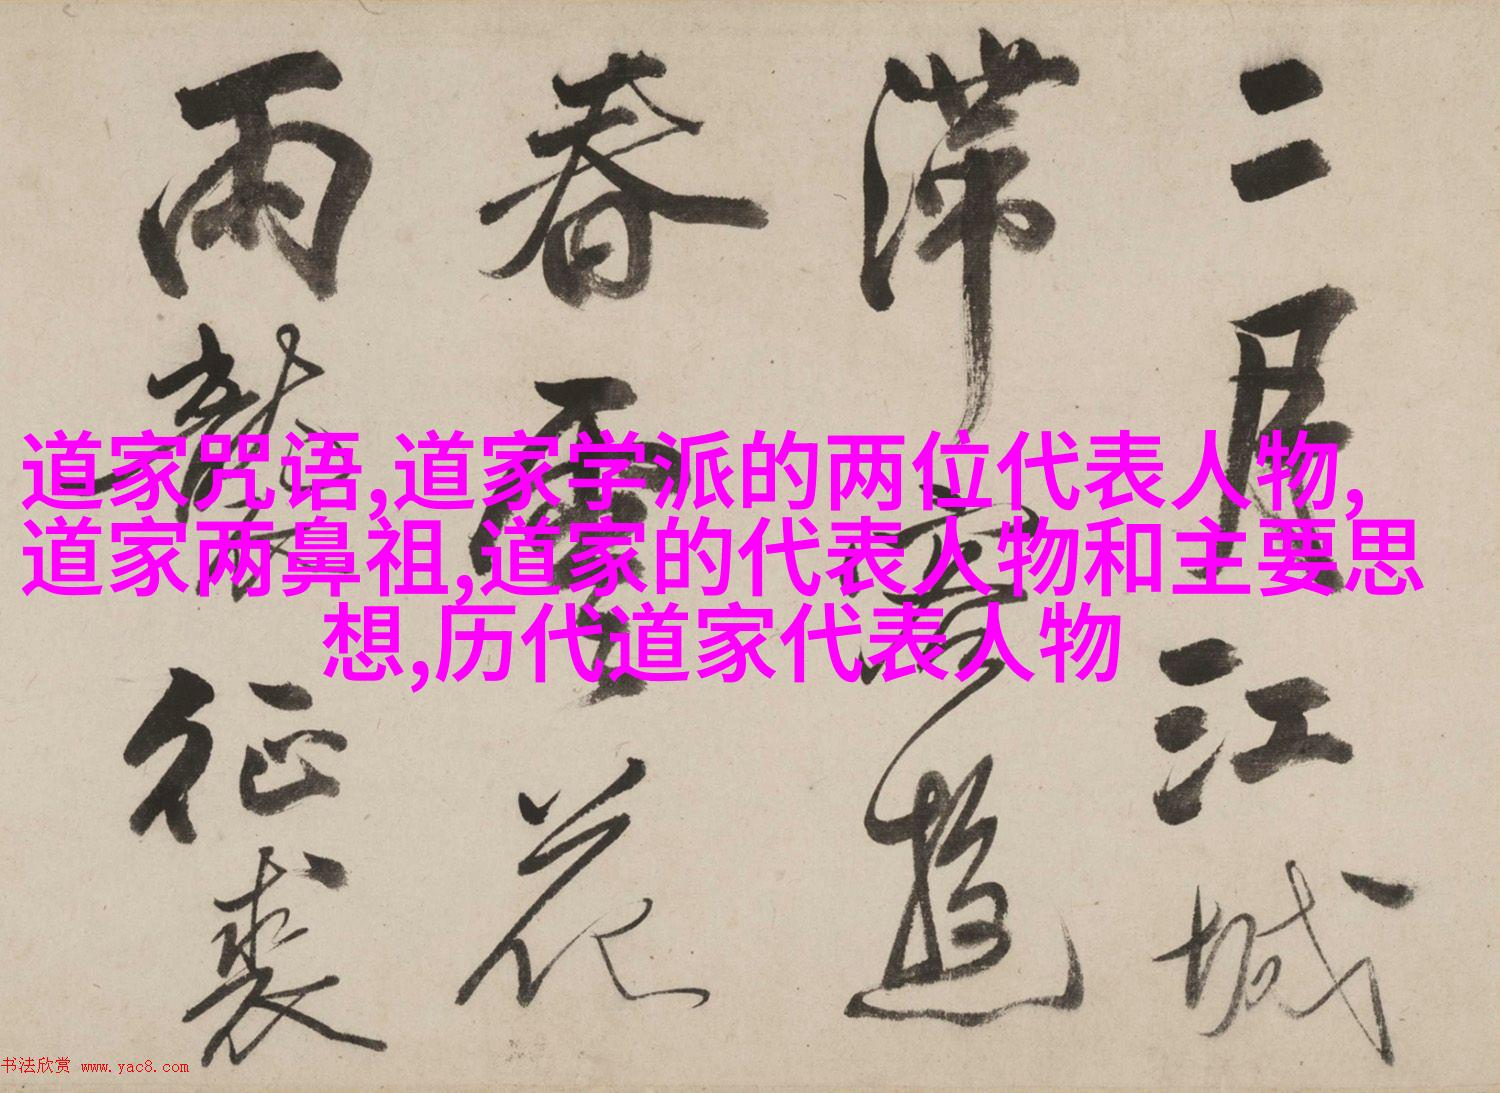 二月江城
滞客游
春雪花
两鬓征裘
道家咒语,道家学派的两位代表人物,
道家两鼻祖,道家的代表人物和主要思
想,历代道家代表人物
书法欣赏 www.yac8.com